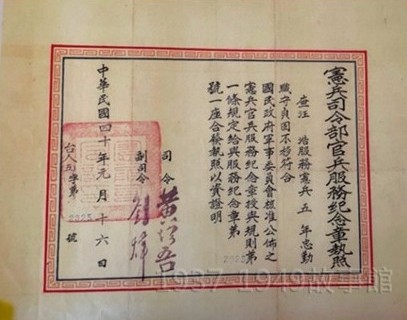 憲兵司令部官兵服務紀念章執照
查汪 浩服務憲兵 五 年忠勤
職守貞固不移符合
國民政府軍事委員會核准公佈之
憲兵官兵服務紀念章授與規則第
一條規定給與服務紀念章第
號一座合發執照以資證明
司令 黃珍吾
副司令
中華民國四十年元月十六日
台人 字第 2025 號
1937-1949故事館